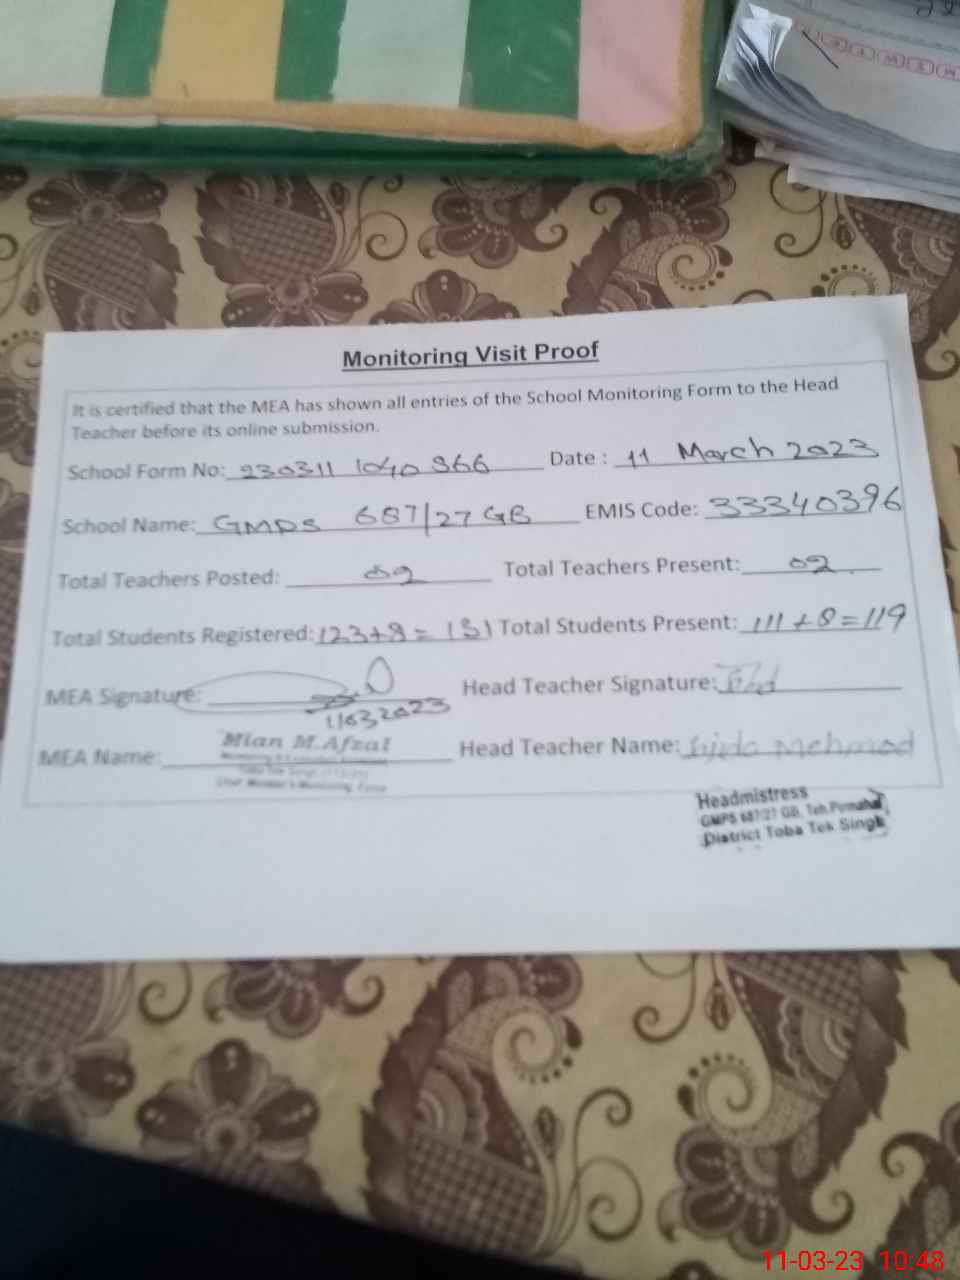 Monitoring Visit Proof
It is certified that the MEA has shown all entries of the School Monitoring Form to the Head
Teacher before its online submission.
School Form No: 230311 1040 966 Date : 11 March 2023
School Name: GMPS 687/27 GB EMIS Code: 33340396
Total Teachers Posted: 02 Total Teachers Present: 02
Total Students Registered: 123+8 = 131 Total Students Present: 111+8=119
MEA Signature: Head Teacher Signature:
11032023
MEA Name: Mian M.Afzal Head Teacher Name: Mehmod
Headmistress
GMPS 687/27 GB, Teh.Pirmahal
District Toba Tek Singh
11-03-23 10:48